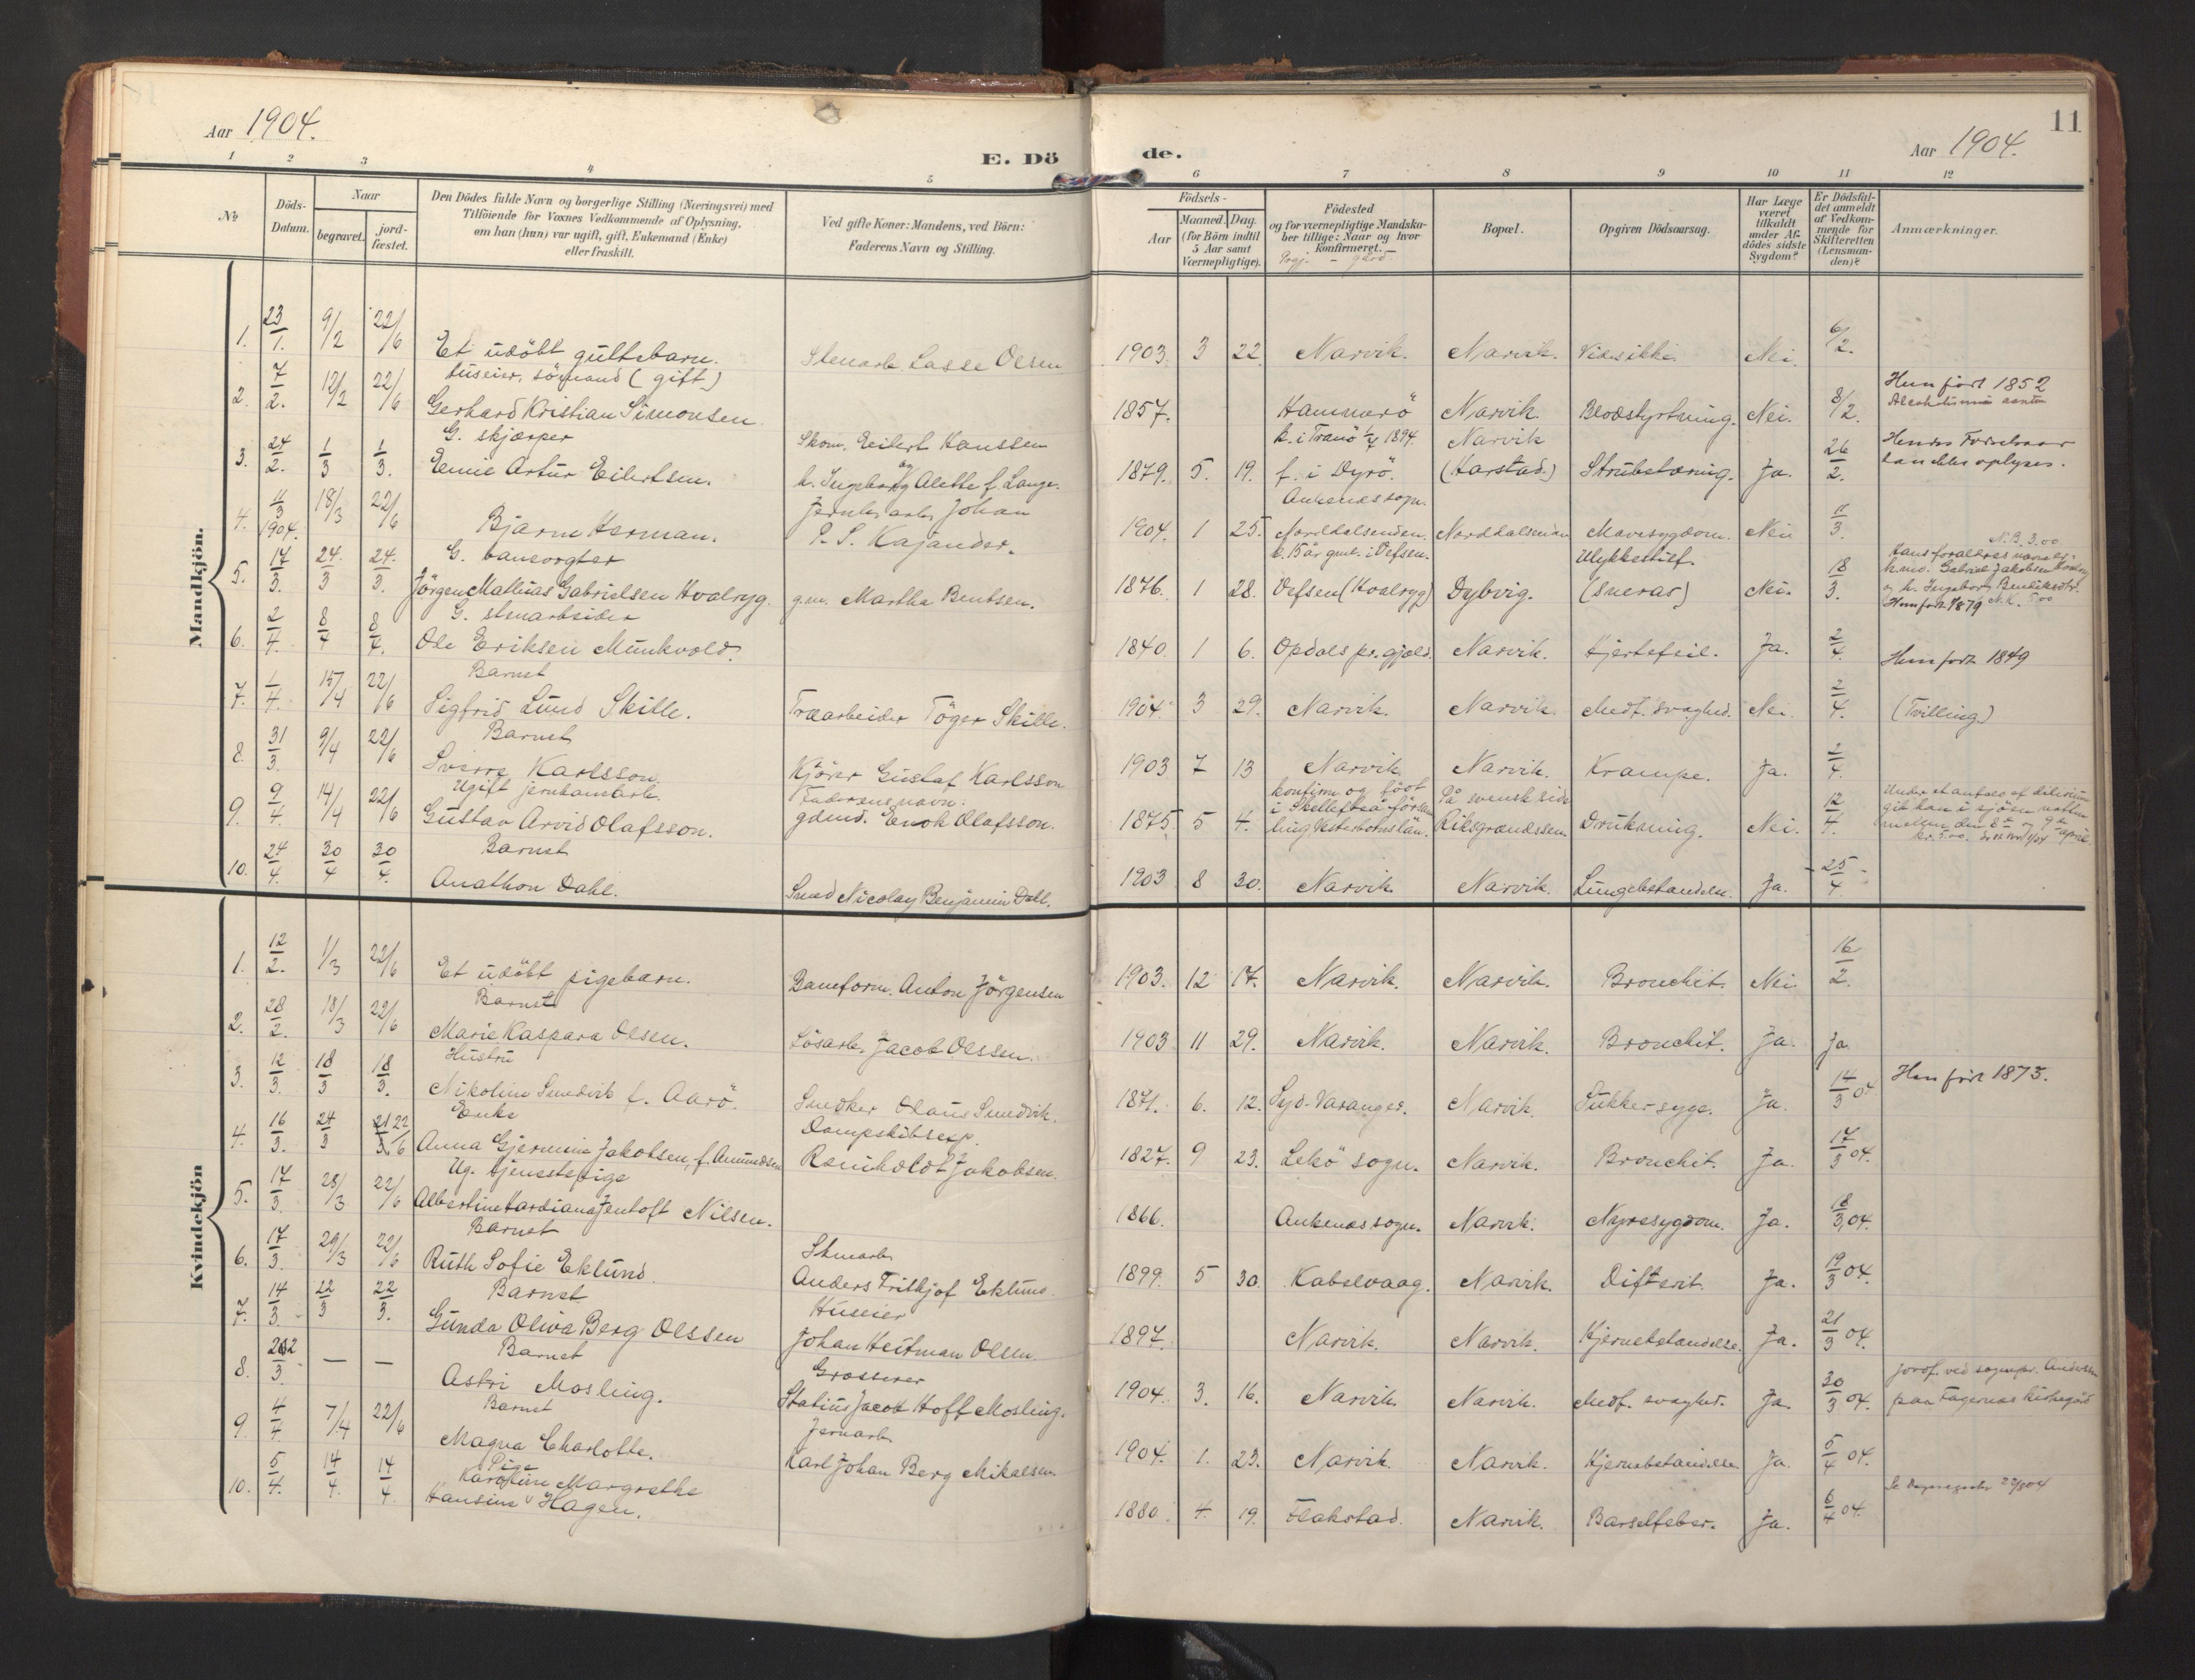 Aar 1904.
E. Dö
de.
Aar 1904.
11
1 2 3 4 5 6 7 8 9 10 11 12
№
Döds-
Datum.
Naar
begravet.
jord-
fæstet.
Den Dödes fulde Navn og borgerlige Stilling (Næringsvei) med
Tilföiende for Voxnes Vedkommende af Oplysning,
om han (hun) var ugift, gift, Enkemand (Enke)
eller fraskilt.
Ved gifte Koner: Mandens, ved Börn:
Faderens Navn og Stilling.
Födsels-
Aar
Maaned.
Dag.
(for Börn indtil
5 Aar samt
Værnepligtige).
Födested
og for værnepligtige Mandska-
ber tillige: Naar og hvor
konfirmeret.
Bopæl.
Opgiven Dödsaarsag.
Har Læge
været
tilkaldt
under Af-
dödes sidste
Sygdom?
Er Dödsfal-
det anmeldt
af Vedkom-
mende for
Skifteretten
(Lensman-
den)?
Anmærkninger.
Mandkjön.
1. 23/1. 9/2 22/6 Et udöbt guttebarn. Stenarb. Lasse Olsen 1903. 3 22 Narvik. Narvik. Vides ikke. Nei. 6/2.
huseier, sömand (gift)
2. 7/2. 12/2 22/6 Gerhard Kristian Simonsen 1857. Hammerö Narvik. Blodstyrtning. Nei. 8/2. Hun født 1852
G. skjærper Skom. Eilert Hanssen k. i Tranö 1/7 1894. Narvik
3. 24/2. 1/3 1/3. Ennie Artur Eilertsen. og h. Ingeborg Alette f. Lange. 1879. 5. 19. f. i Dyrö. (Harstad.) Strubetæring. Ja. 26/2. Hendes Fødselsaar
kan ikke oplyses.
Jernbearb. Johan Ankenes sogn.
4. 4/3 1904. 18/3 22/6 Bjarne Herman. P. S. Kajander. 1904. 1 25. Norddalsenden. Norddalsenden Mavesygdom. Nei 11/3.
G. banevogter k. 15 år gml. i Vefsen. Ulykkestilf. N.B. 3.00
5. 17/3. 24/3 24/3. Jörgen Mathias Gabrielsen Hvalryg. g.m. Martha Bentsen. 1876. 1 28. Vefsen (Hvalryg) Dybvig. (sneras) Nei. 18/3. Hans forældres navn er:
h.md. Gabriel Jakobsen
og h. Ingeborg Bendiksdtr.
Hun født 1879
G. stenarbeider
6. 2/4. 8/4 8/4. Ole Eriksen Munkvold. 1840. 1 6. Opdals pr.gjeld. Narvik. Hjertefeil. Ja. 2/4. Hun født 1849
Barnet
7. 1/4. 15/4 22/6 Sigfrid Lund Skille. Træarbeider Töger Skille. 1904. 3 29. Narvik. Narvik. Medf. svaghed. Nei. 2/4. (Tvilling)
Barnet
8. 31/3. 9/4 22/6 Sverre Karlsson. Kjörer Gustaf Karlsson 1903 7 13 Narvik Narvik. Krampe. Ja. 2/4.
Ugift jernbanearb. Faderens navn: konfirm. og født På svensk side
i Skellefteå försam-
9. 9/4. 14/4 22/6 Gustav Arvid Olafsson. gdmd. Enok Olafsson. 1875. 5 4. ling Vesterbotnslän. Riksgrændssen Drukning. Nei. 12/4. Under et anfald af delirium
gik han i sjöen natten
mellem den 8de og 9de april
Barnet
10. 24/4. 30/4 30/4. Anathon Dahl. Smed Nicolay Benjamin Dahl. 1903 8 30. Narvik Narvik. Lungebetændelse. Ja. 25/4
Kvindekjön
1. 12/2. 1/3 22/6 Et udöbt pigebarn. Baneform. Anton Jörgensen 1903. 12 17. Narvik. Narvik. Bronchit. Nei 16/2.
Barnet
2. 28/2. 18/3 22/6 Marie Kaspara Olsen. Lösarb. Jacob Olssen. 1903 11 29. Narvik. Narvik. Bronchit. Ja. Ja
Hustru
3. 12/3. 18/3 18/3. Nikoline Smedvik f. Aarö. Snedker Olaus Smedvik. 1871. 6. 12. Syd-Varanger. Narvik. Sukkersyge. Ja. 14/3 04 Han født 1873.
Enke Dampskibsexp.
4. 16/3. 24/3 22/6 Anna Gjermine Jakobsen, f. Amundsen Reinholdt Jakobsen. 1827. 9 23. Lekö sogn. Narvik. Bronchit. Ja. 17/3 04.
Ug. tjenestepige
5. 17/3. 28/3 22/6 Albertine Jentoft Nilsen. 1866. Ankenes sogn. Narvik. Nyresygdom. Ja. 18/3 04.
Barnet
6. 17/3. 29/3 22/6 Ruth Sofie Eklund. Stenarb. Anders Frithjof Eklund. 1899. 5 30 Kabelvaag. Narvik. Difterit. Ja. 19/3 04.
Barnet Huseier
7. 14/3. 22/3 22/3. Gunda Oliva Berg Olssen Johan Heitman Olsen. 1897. Narvik. Narvik. Hjernebetændelse. Ja. 21/3 04.
Barnet Grosserer
8. — — Astri Mosling. Statius Jacob Hoff Mosling. 1904. 3. 16. Narvik. Narvik. Medf. svaghed. Ja. 30/3 04. jordf. ved sognepr.
paa Fagernes Kirkegård
Barnet Jernarb.
9. 4/4. 7/4 22/6 Magna Charlotte. Karl Johan Berg Mikalsen. 1904. 1. 23. Narvik. Narvik. Hjernebetændelse Ja. 5/4 04.
Pige
10. 5/4. 14/4. 14/4 Karoline Margrethe
Hansine Hagen. 1880. 4. 19. Flakstad. Narvik. Barselfeber. Ja. 6/4 04.